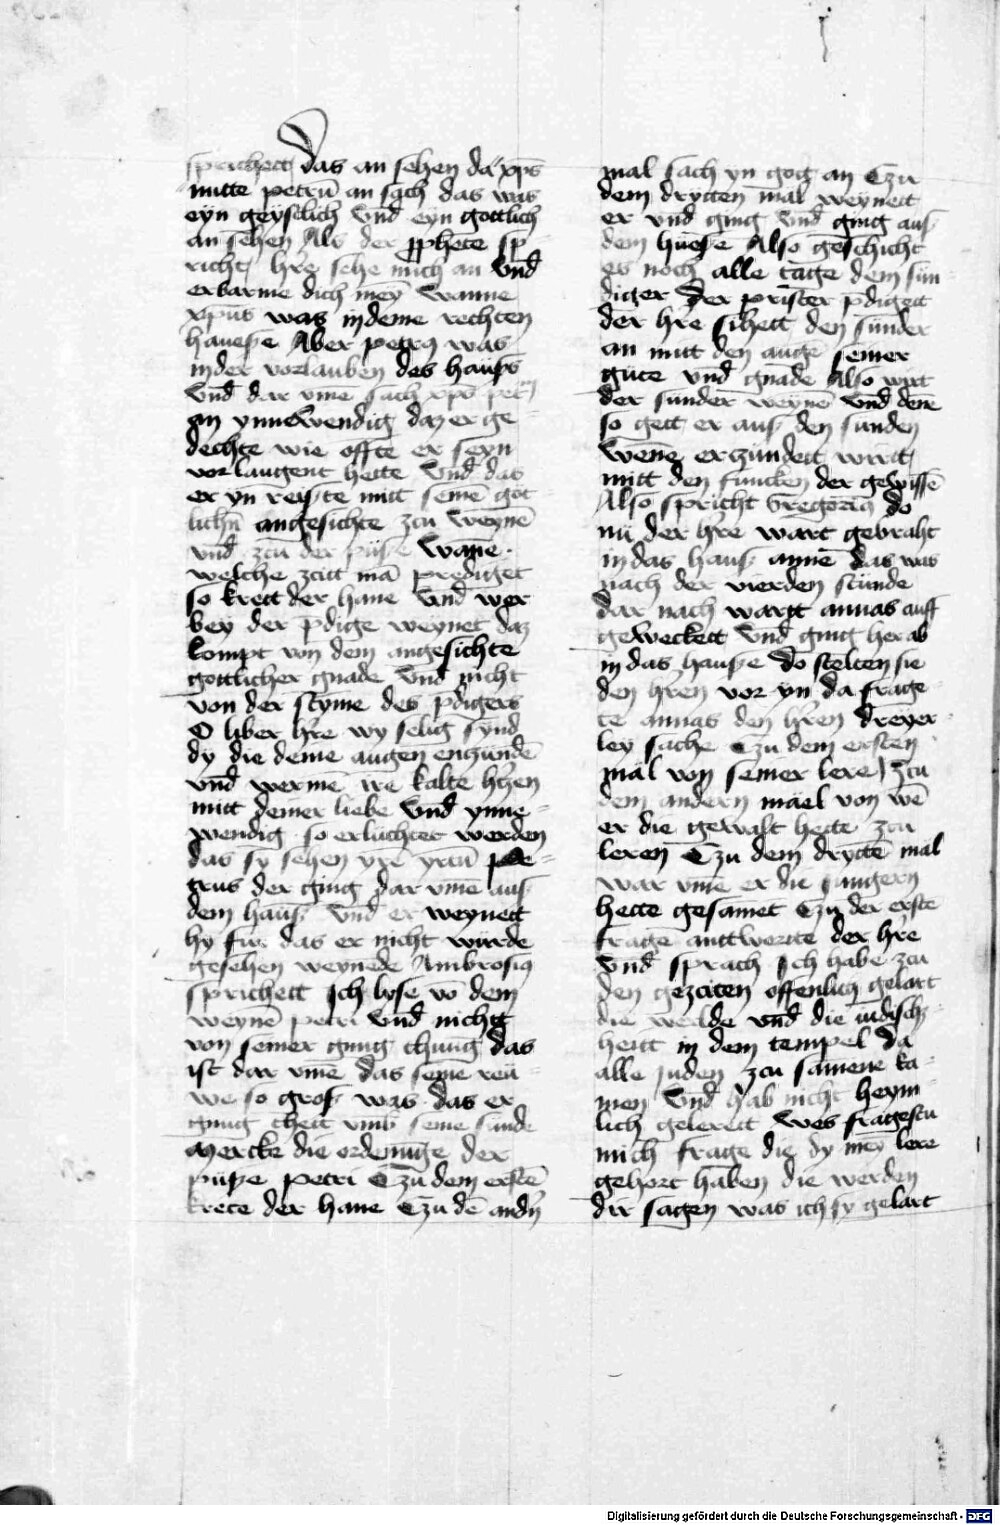 sprichett das an sehen da xp̄s
mitte petrū an sach das was
eyn geystlich vnd̄ eyn gottlich
an sehen Als der ꝓphete sp-
richt hre sehe mich an vnd̄
erbarme dich mey wanne
xpūs was in deme rechten
hawsze Aber petrꝰ was
in der vorlauben des hawsz
vnd̄ dar vm̄e sach xp̄s petrū
an ynnewendig daz er ge-
dechte wie offte er seyn
vorlaugent hette vnd̄ das
er yn reiszte mitt seinē got-
lichn̄ angesichte zcu weynē
vnd̄ zcu der püsze wan̄e
welche zcitt mā prediget
so kreet der hane vnd̄ wer
bey der p̄dige weynet daz
kompt von dem angesichte
gottlicher gnade vnd̄ nicht
von der styme des p̄digers
O liber hr̄e wy selig synd
dy die deine augen enzundē
vnd̄ wermē ire kalte hr̄zen
mitt deiner liebe vnd̄ ynne-
wendig so erluchtet werden
das sy sehen yrē yrtū pe-
trus der ging dar vm̄e aus
dem haus vnd̄ er weynett
hy für das er nicht würde
gesehen weynēde Ambrosiꝰ
sprichett Ich lose vō dem
weynē petri vnd̄ nichtz
von seiner gnug thung das
ist dar vm̄e das seine reü-
we so gros was das er
gnug thett vmb seine sunde
Mercke die ordenūge der
püsze petri Czu dem erstē
krete der hane Czu dē andn̄
mal sach yn gott an Czu
dem drytten mal weynett
er vnd ging vnd̄ ging aus
dem hüsze Also geschicht
es noch alle tage dem sün-
diger Der prister p̄digett
der hr̄e sihett den sunder
an mitt den augē seiner
güte vnd̄ gnade Also wirt
der sunder weynē vnd̄ denē
so gett er aus den sunden
Wenē erzündett wirtt
mitt den funcken der gewissē
Also spricht Gregoriꝰ do
nü der hr̄re wart gebraht
in das haus annē das was
nach der vierden stunde
dar nach wartt annas auff
geweckett vnd̄ ging her ab
in das hausze Do stelten sie
den hr̄en vor yn da frage-
te annas den hr̄en dreyer-
ley sache Czu dem ersten
mal von seiner lere / Zcu
dem andern mael von wē
er die gewalt hette zcu
leren Czu dem dryttē mal
war vm̄e er die jungern
hette gesamet Czu der erste
frage anttwertte der hr̄e
vnd̄ sprach Ich habe zcu
den gezciten offenlich gelart
die werlde vnd̄ die iudisch-
heitt in dem tempel da
alle juden zcu samene ka-
men vnd̄ hab nicht heym-
lich gelerett wes fragestu
mich frage die dy mey lere
gehort haben die werden
dir sagen was ich sy gelart
Digitalisierung gefördert durch die Deutsche Forschungsgemeinschaft - DFG